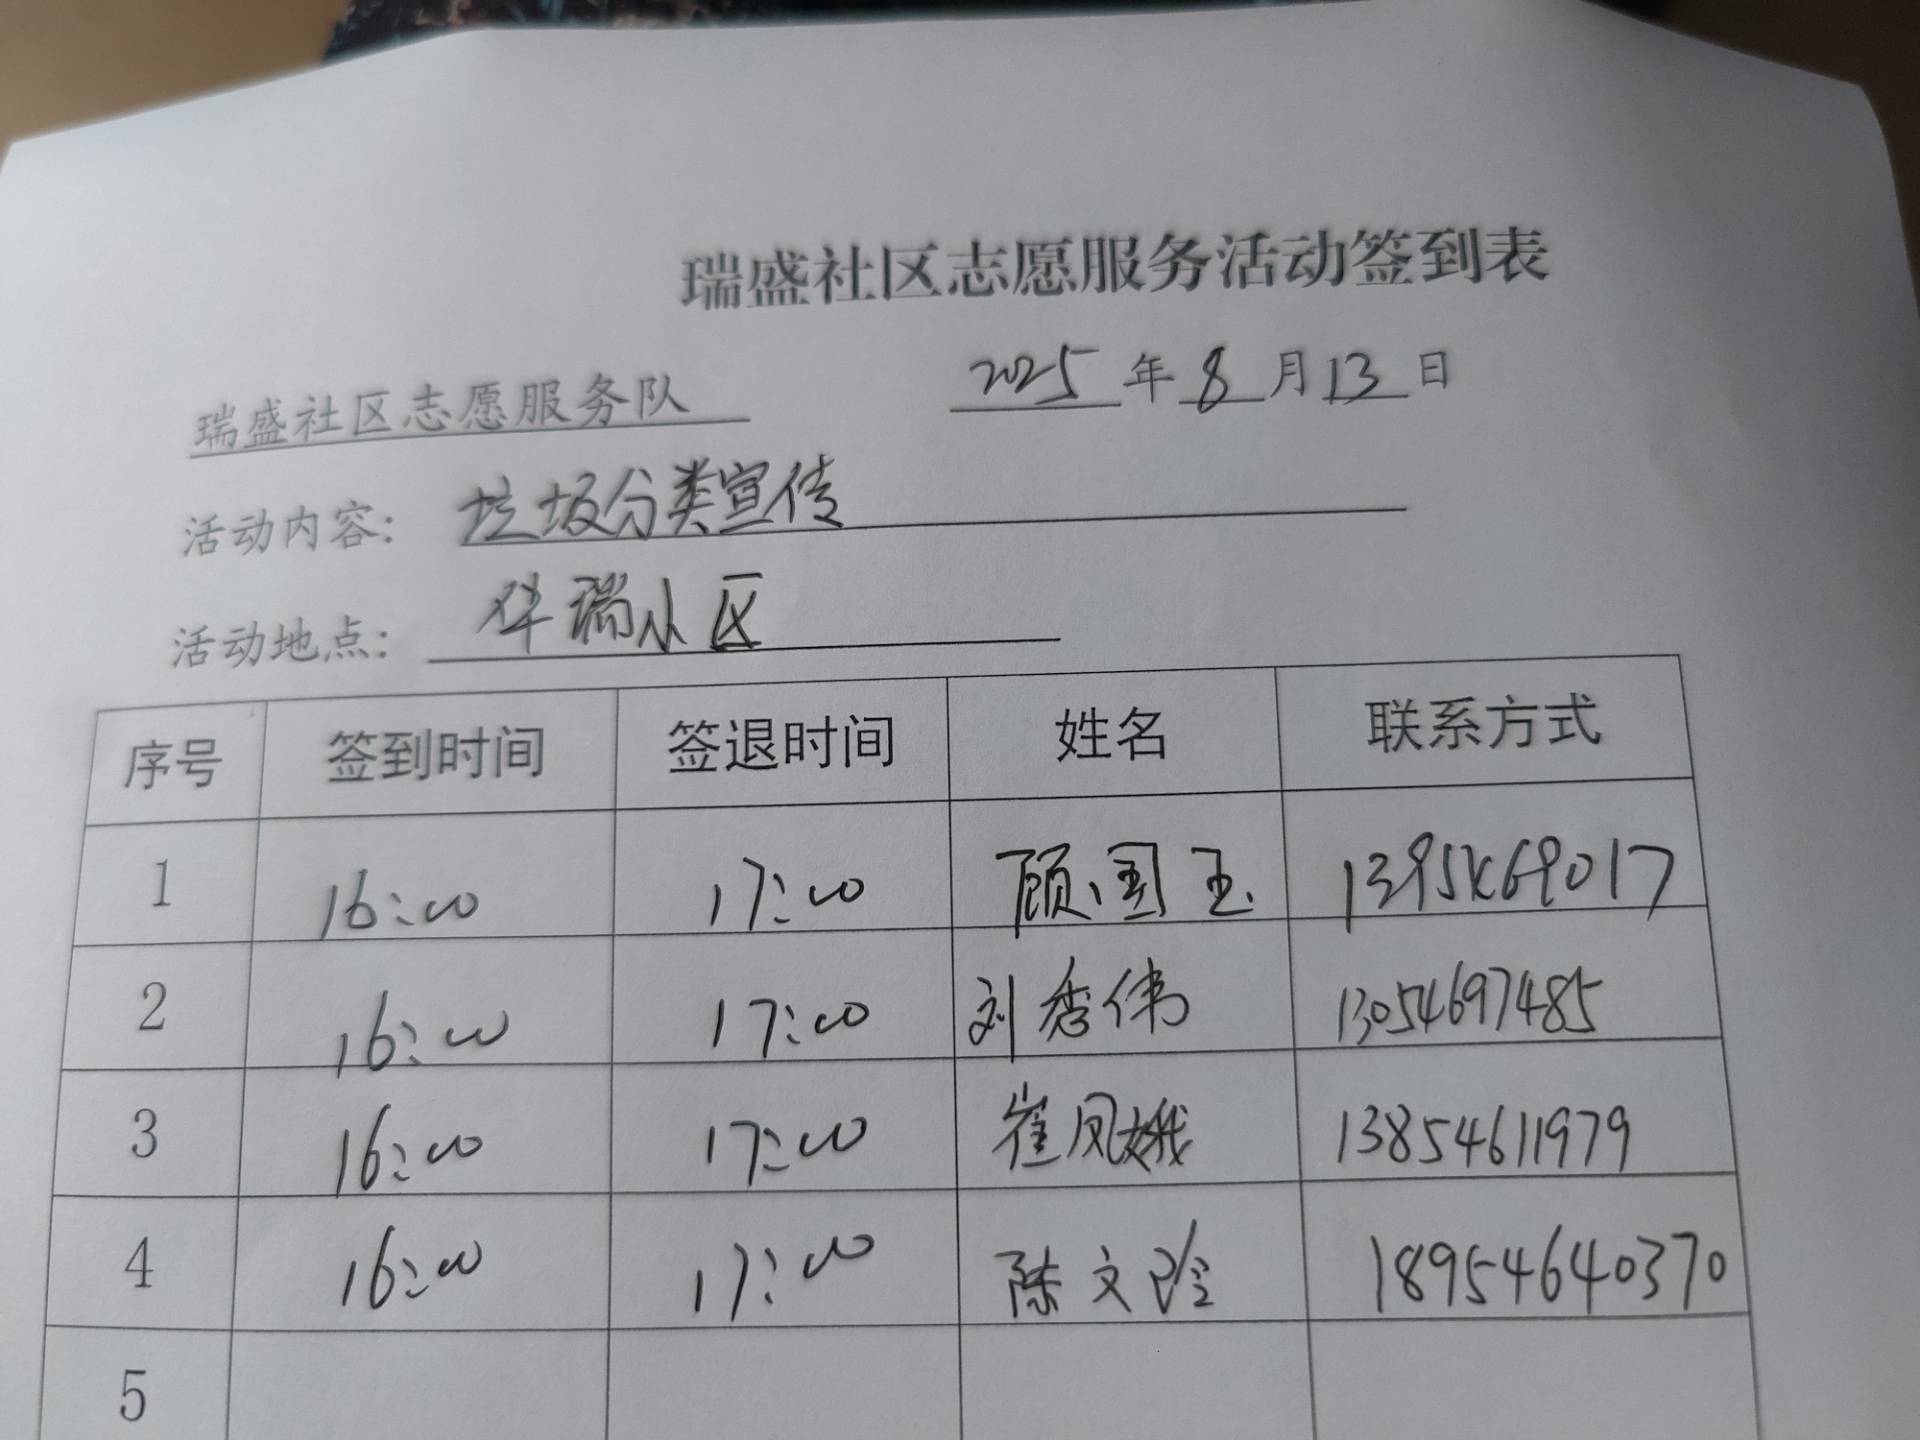 瑞盛社区志愿服务活动签到表
瑞盛社区志愿服务队 2025 年 8 月 13 日
活动内容: 垃圾分类宣传
活动地点: 华瑞小区
序号 签到时间 签退时间 姓名 联系方式
1 16:00 17:00 顾国玉
2 16:00 17:00 刘秀伟 13054697485
3 16:00 17:00 崔凤娥 13854611979
4 16:00 17:00 陈文玲 18954640370
5